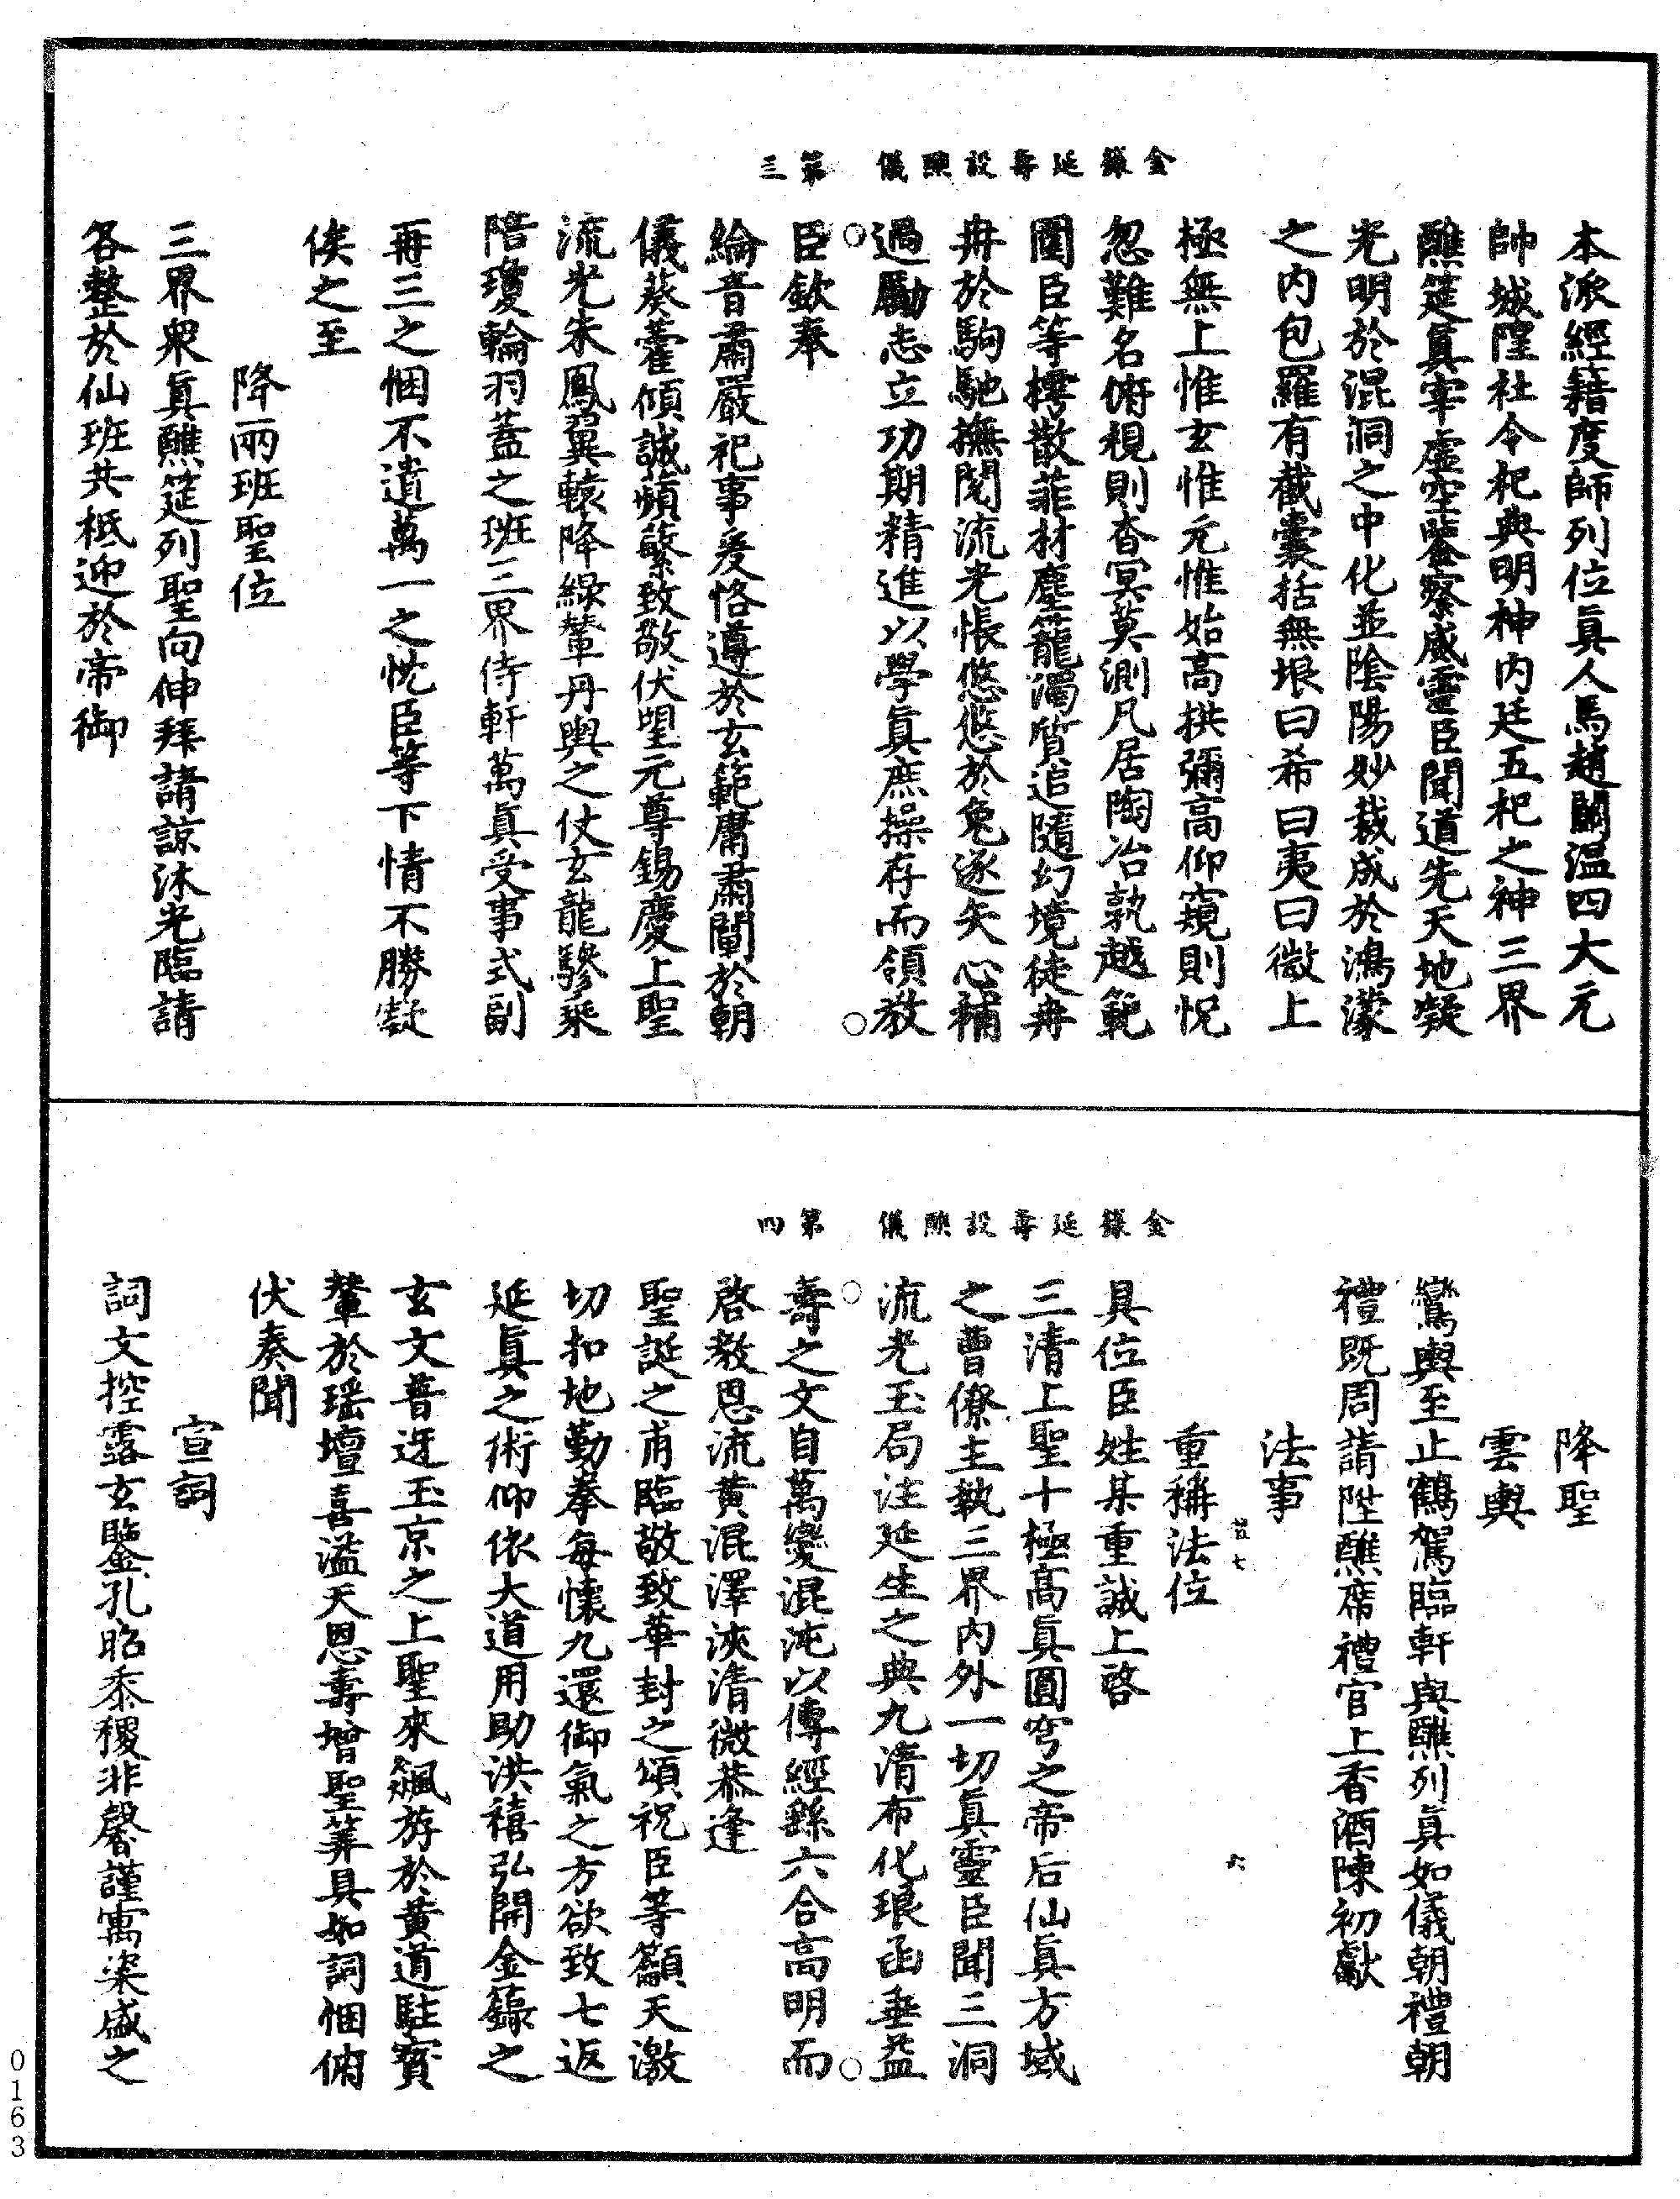 金籙延壽設醮儀　第三
本派經籍度師列位真人馬趙關溫四大元
帥城隍社令祀典明神內廷五祀之神三界
醮筵真宰虛空鑒察威靈臣聞道先天地凝
光明於混洞之中化並陰陽妙裁成於鴻濛
之內包羅有截囊括無垠曰希曰夷曰微上
極無上惟玄惟元惟始高拱彌高仰窺則怳
忽難名俯視則杳冥莫測凡居陶冶孰越範
圍臣等樗散菲材塵籠濁質追隨幻境徒冉
冉於駒馳撫閱流光悵悠悠於兔逐矢心補
過勵志立功期精進以學真庶操存而領教
臣欽奉
綸音肅嚴祀事爰恪遵於玄範庸肅闡於朝
儀葵藿傾誠蘋蘩致敬伏望元尊錫慶上聖
流光朱鳳翼轅降綠輦丹輿之仗玄龍驂乘
陪瓊輪羽蓋之班三界侍軒萬真受事式副
再三之悃不遺萬一之忱臣等下情不勝凝
俟之至
降兩班聖位
三界衆真醮筵列聖向伸拜請諒沐光臨請
各整於仙班共祗迎於帝御
金籙延壽設醮儀　第四
降聖
雲輿
鸞輿至止鶴駕臨軒與醮列真如儀朝禮朝
禮既周請陞醮席禮官上香酒陳初獻
法事
重稱法位
具位臣姓某重誠上啓
三清上聖十極高真圓穹之帝后仙真方域
之曹僚主執三界內外一切真靈臣聞三洞
流光玉局注延生之典九清布化琅函垂益
壽之文自萬變混沌以傳經繇六合高明而
啓教恩流黃混澤浹清微恭逢
聖誕之甫臨敬致華封之頌祝臣等籲天激
切扣地勤拳每懷九還御氣之方欲致七返
延真之術仰依大道用助洪禧弘開金籙之
玄文普迓玉京之上聖來飆斿於黃道駐寶
輦於瑶壇喜溢天恩壽增聖筭具如詞悃俯
伏奏聞
宣詞
詞文控露玄鑒孔昭黍稷非馨謹寓粢盛之
0163